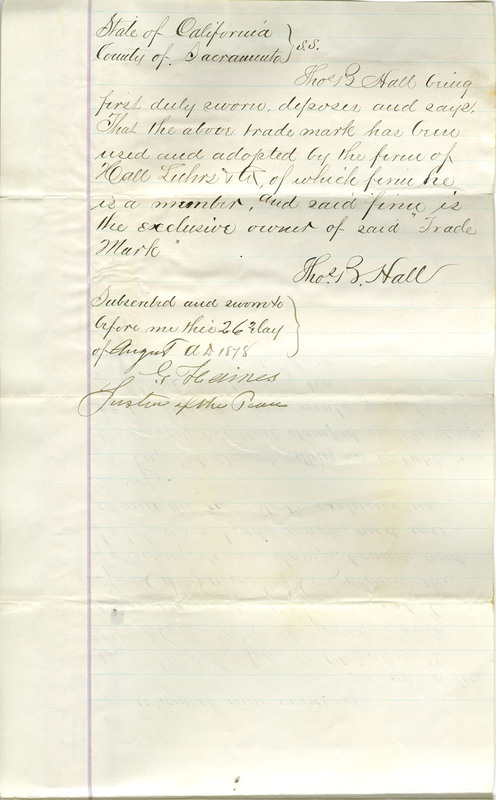 State of California
County of Sacramento } S.S.
Thos B Hall being
first duly sworn, deposes and says.
That the above trade mark has been
used and adopted by the firm of
"Hall Luhrs & Co, of which firm he
is a member, and said firm is
the exclusive owner of said "Trade
Mark"
Thos B. Hall
Subscribed and sworn to
before me this 26th day
of August AD 1878
Haines
Justice of the Peace